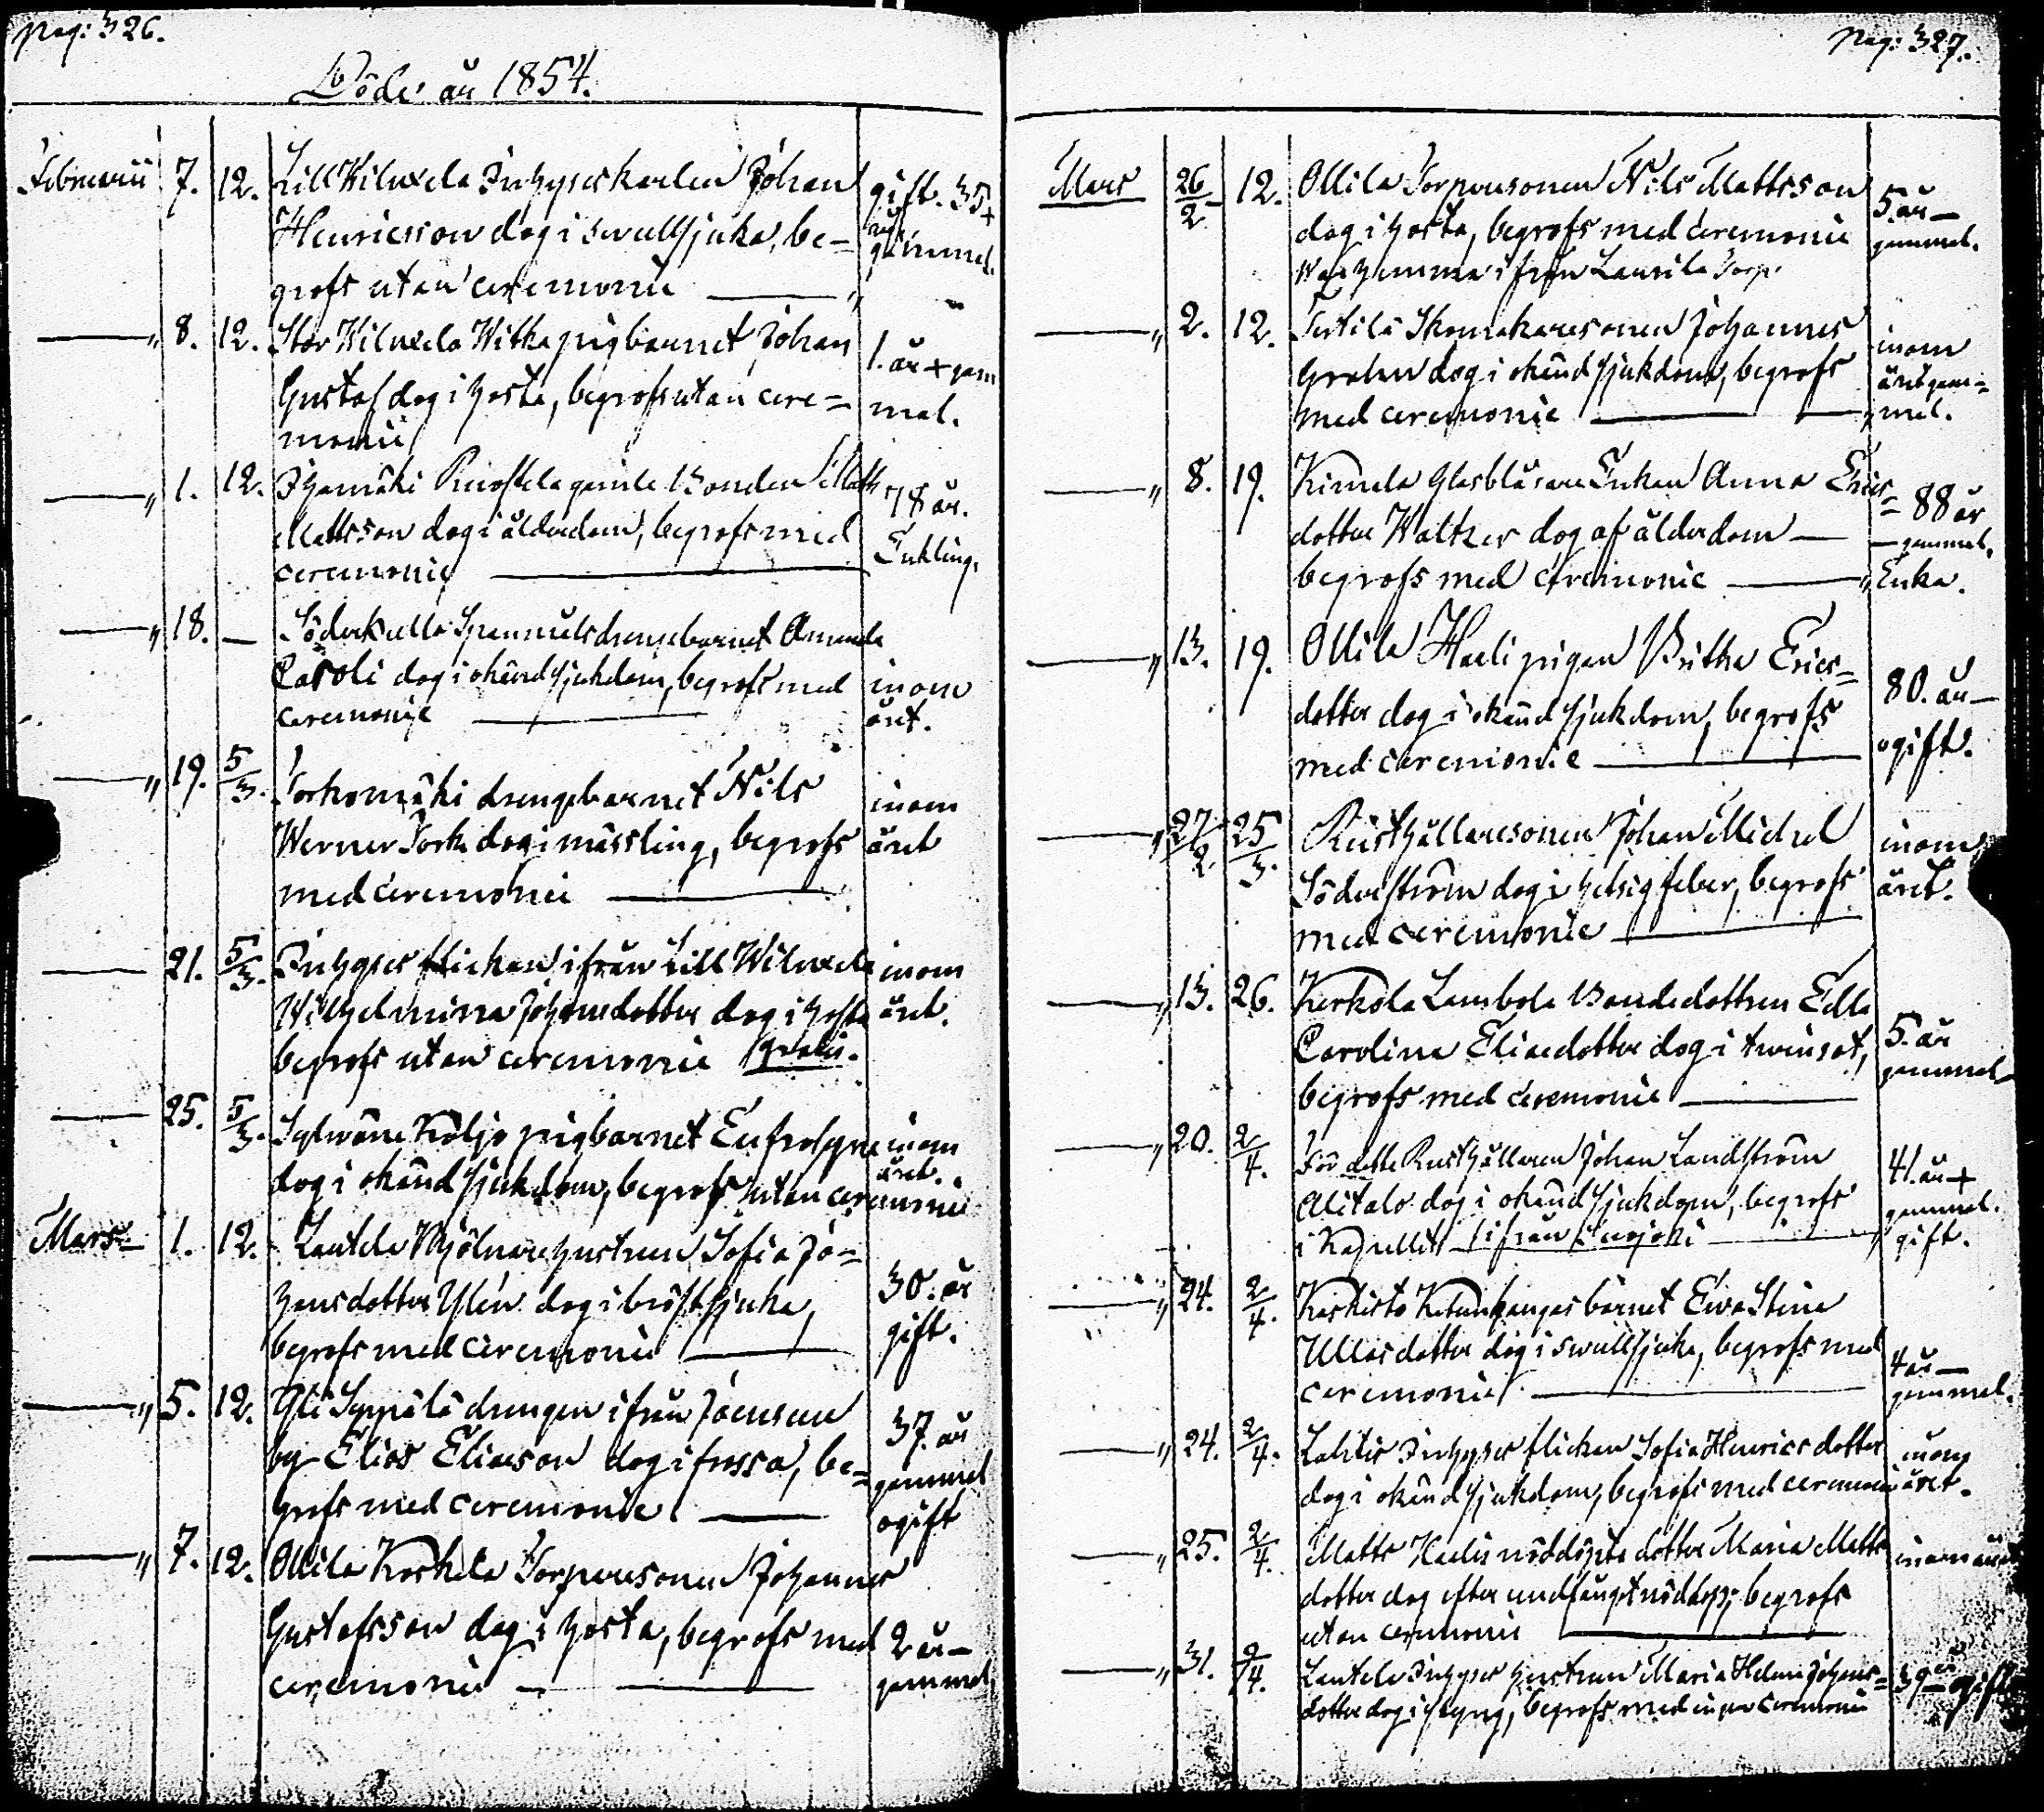 Pag: 326.
Döde år 1854.
Februarii 7. 12. Lill Wiluxela Inhyseskarlen Johan gift. 35
Henricsson dog i swullsjuka, be= år gammel.
grofs utan ceremonie
— " 8. 12. Stor Wiluxela pigbarnet Johan 1. år gam
Gustaf dog i hosta, begrofs utan cere= mal.
monie
— " 1. 12. gamle Bonden Matts 78 år.
Mattsson dog i ålderdom, begrofs med Enkling.
ceremonie
— " 18. — Söderkulla drengebarnet Amanda
Caroli dog i okänd sjukdom, begrofs med inom
ceremonie året.
— " 19. 5/3. Torkomäki drengebarnet Nils inom
Werner Tork dog i mässling, begrofs året
med ceremonie
— 21. 5/3. Inhyses flickan ifrån Lill Wiluxela inom
Wilhelmina Johansdotter dog i hosta året.
begrofs utan ceremonie gratis.
— 25. 5/3. pigbarnet Eufrosyne inom
dog i okänd sjukdom, begrofs utan ceremonie året.
Mars 1. 12. Lautela Mjölnarehustrun Sofia Jo=
hansdotter Ylén dog i bröstsjuka, 30. år
begrofs med ceremonie gift.
— " 5. 12. Yli Seppälä drengen ifrån Joensuu 37. år
by Elias Eliasson dog i frossa, be= gammel
grofs med ceremonie ogift
— " 7. 12. Ollila Koskela Torparesonen Johannes
Gustafsson dog i hosta, begrofs med 2 år
ceremonie gammel
Pag: 327.
Mars 26/2 12. Ollila Torparesonen Nils Mattsson 5. år
dog i hosta, begrofs med ceremonie gammel.
ifrån Laurila Torp.
— " 2. 12. Skomakaresonen Johannes inom
dog i okänd sjukdom, begrofs året gam=
med ceremonie mel.
— " 8. 19. Kimola Glasblåsare Enkan Anna Erics= 88 år
dotter Waltzer dog af ålderdom — gammel.
begrofs med ceremonie Enka.
— " 13. 19. Ollila Haeli pigan Britha Erics= 80. år
dotter dog i okänd sjukdom, begrofs
med ceremonie ogift.
— " 27/2 25/3. Rusthållaresonen Johan Michel inom
Söderström dog i hetsig feber, begrofs året.
med ceremonie
— " 13. 26. Kerkola Lambola Bondedottren Edla
Carolina Eliaedotter dog i twinsot, 5. år
begrofs med ceremonie gammel
— " 20. 2/4. För detta Rusthållaren Johan Landström 41. år
Alitalo dog i okänd sjukdom, begrofs gammel.
i Kapellit ifrån gift.
— " 24. 2/4. Koskisto barnet Ewa Stina
Ullasdotter dog i swullsjuka, begrofs med 4 år
ceremonie gammel.
— " 24. 2/4. Lahtis Inhyses flickan Sofia Henricsdotter inom
dog i okänd sjukdom, begrofs med ceremonie året.
— " 25. 2/4. Matts Haelis nöddöpta dotter Maria Matts inom året
dotter dog efter undfånget nöddop; begrofs
utan ceremonie
— " 31. 2/4. Lautela Inhyses hustrun Maria Helena Johans= 39 år gift
dotter dog i styng, begrofs med ceremonie